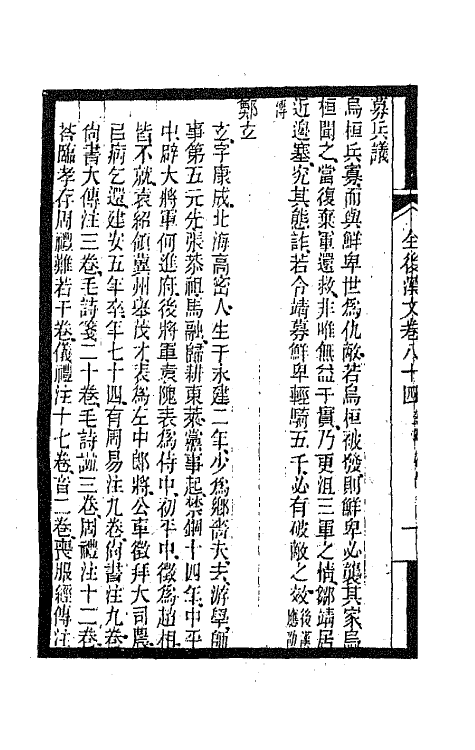 全後漢文卷八十四
募兵議
烏桓兵寡而與鮮卑世爲仇敵若烏桓被發則鮮卑必襲其家烏
桓聞之當復棄軍還救非唯無益于實乃更沮三軍之情鄒靖居
近邊塞究其態詐若令靖募鮮卑輕騎五千必有破敵之效後漢應劭
傳
鄭玄
玄字康成北海高密人生于永建二年少爲鄉嗇夫去游學師
事第五元先張恭祖馬融歸耕東萊黨事起禁錮十四年中平
中辟大將軍何進府後將軍袁隗表爲侍中初平中徵爲趙相
皆不就袁紹領冀州舉茂才表爲左中郎將公車徵拜大司農
呂病乞還建安五年卒年七十四有周易注九卷尚書注九卷
尚書大傳注三卷毛詩箋二十卷毛詩譜三卷周禮注十二卷
荅臨孝存周禮難若干卷儀禮注十七卷音二卷喪服經傳注